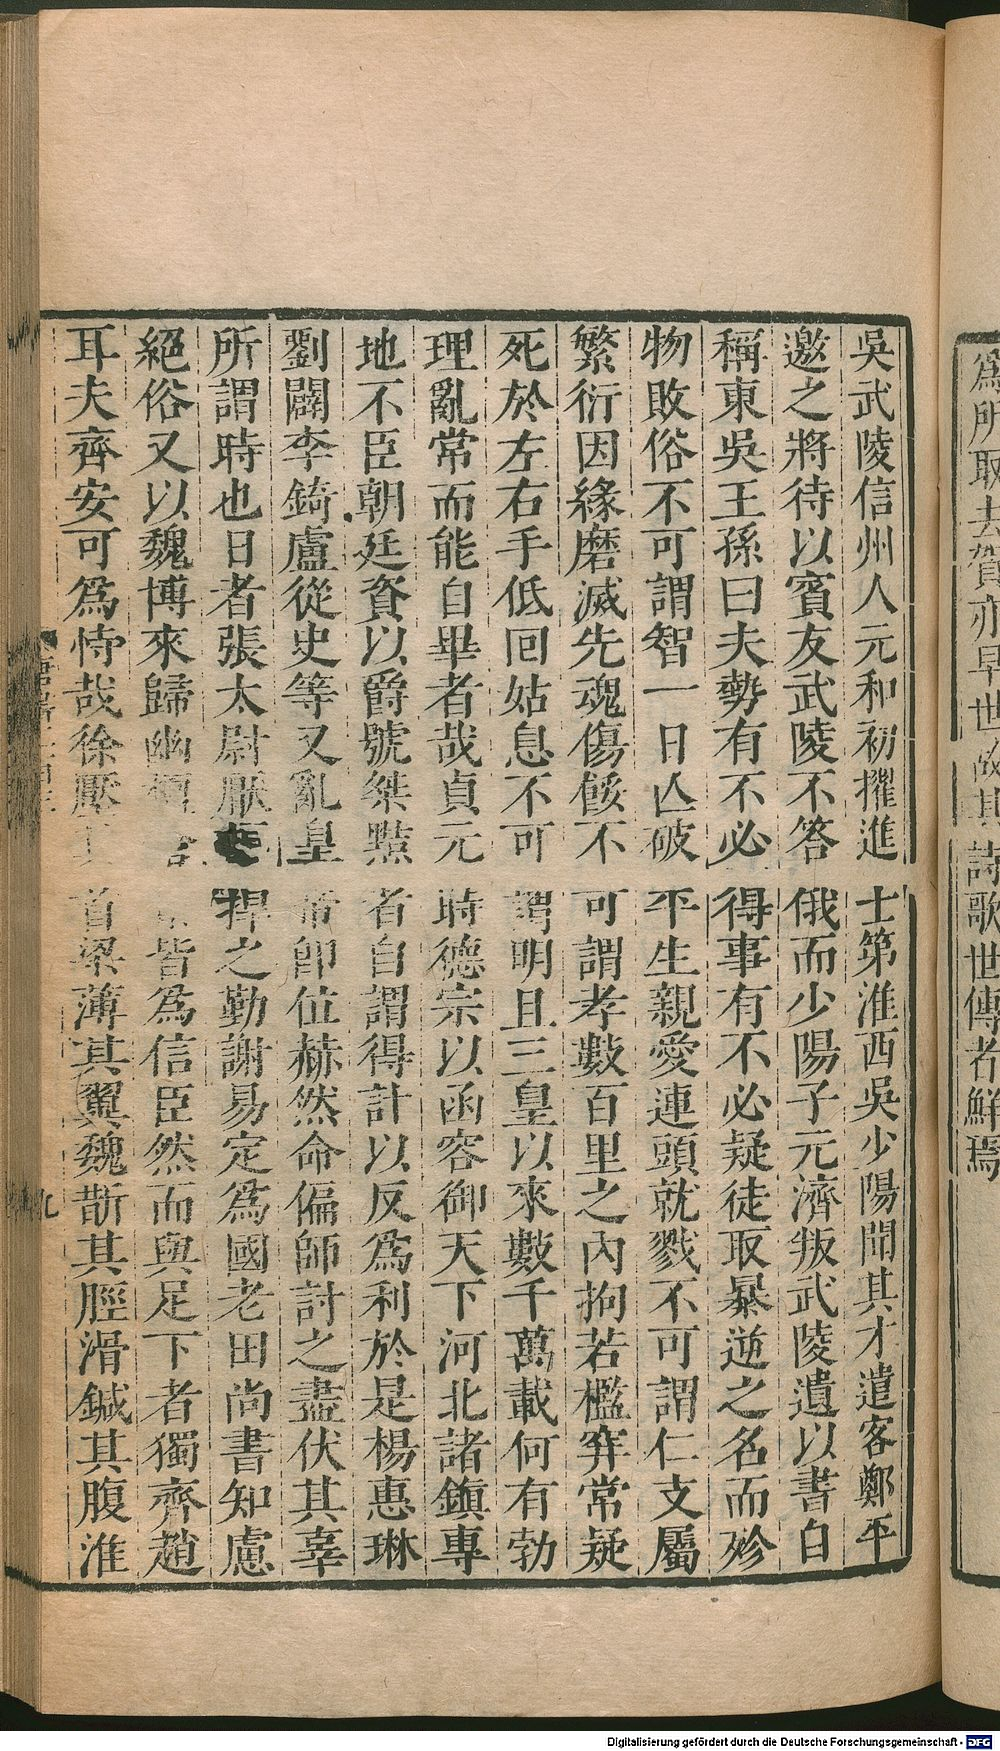 爲所取去賀亦早世故其詩歌世傳者鮮焉
吳武陵信州人元和初擢進士第淮西吳少陽聞其才遣客鄭平
邀之將待以賓友武陵不答俄而少陽子元濟叛武陵遺以書自
稱東吳王孫曰夫勢有不必得事有不必疑徒取暴逆之名而殄
物敗俗不可謂智一日亾破平生親愛連頭就戮不可謂仁支屬
繁衍因緣磨滅先魂傷餒不可謂孝數百里之內拘若檻穽常疑
死於左右手低回姑息不可謂明且三皇以來數千萬載何有勃
理亂常而能自畢者哉貞元時德宗以函容御天下河北諸鎮專
地不臣朝廷資以爵號桀黠者自謂得計以反爲利於是楊惠琳
劉闢李錡盧從史等又亂皇帝卽位赫然命偏師討之盡伏其辜
所謂時也日者張太尉厭捍之勤謝易定爲國老田尚書知慮
絕俗又以魏博來歸幽皆爲信臣然而與足下者獨齊趙
耳夫齊安可爲恃哉徐壓其首梁薄其翼魏斮其脛滑鍼其腹淮
九
Digitalisierung gefördert durch die Deutsche Forschungsgemeinschaft - DFG